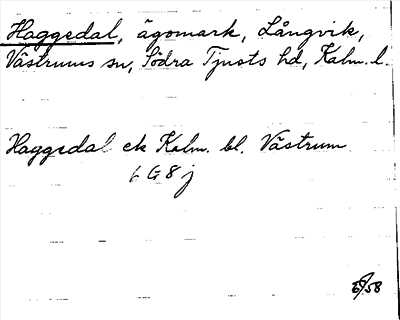 Haggedal, ägomark, Långvik,
Västrums sn, Södra Tjusts hd, Kalm. l.
Haggedal ek Kalm. bl. Västrum
6 G 8 j